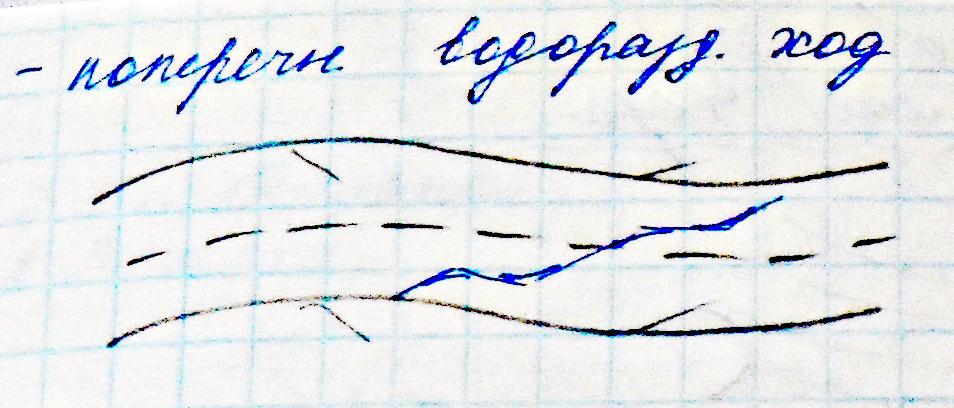 - поперечн водоразд. ход